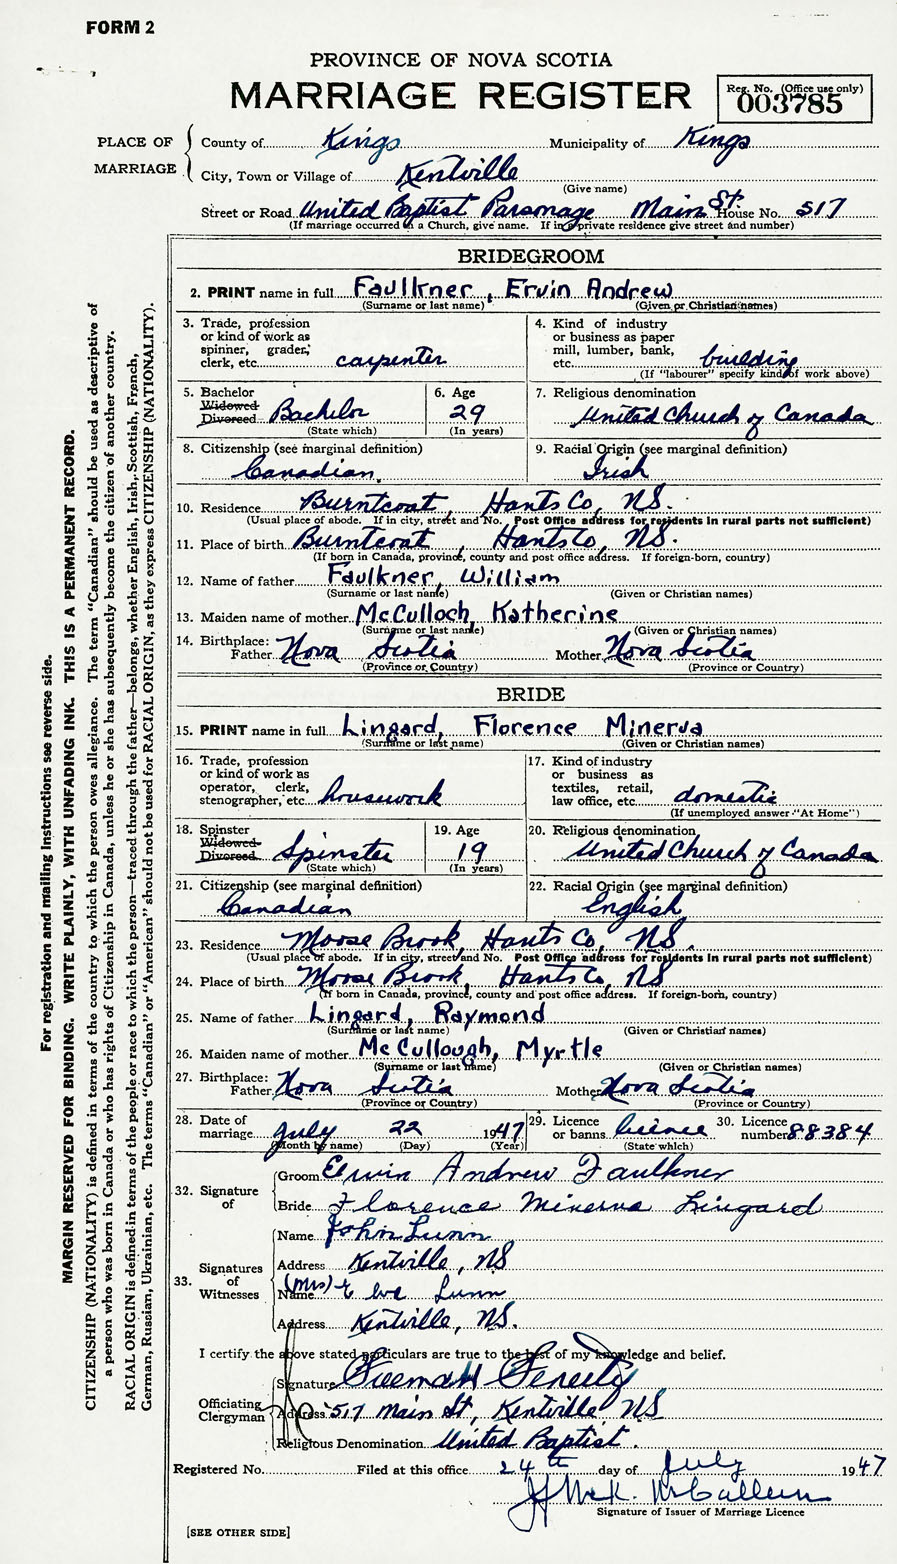 FORM 2
PROVINCE OF NOVA SCOTIA
MARRIAGE REGISTER
Reg. No. (Office use only)
003785
PLACE OF MARRIAGE
County of Kings Municipality of Kings
City, Town or Village of Kentville
(Give name)
Street or Road United Baptist Parsonage Main St. House No. 517
(If marriage occurred in a Church, give name. If in a private residence give street and number)
BRIDEGROOM
2. PRINT name in full Faulkner, Ervin Andrew
(Surname or last name) (Given or Christian names)
3. Trade, profession or kind of work as spinner, grader, clerk, etc. carpenter
4. Kind of industry or business as paper mill, lumber, bank, etc. building
(If "labourer" specify kind of work above)
5. Bachelor Widowed Divorced Bachelor
(State which)
6. Age 29
(In years)
7. Religious denomination
United Church of Canada
8. Citizenship (see marginal definition)
Canadian
9. Racial Origin (see marginal definition)
Irish
10. Residence Burntcoat, Hants Co, NS.
(Usual place of abode. If in city, street and No. Post Office address for residents in rural parts not sufficient)
11. Place of birth Burntcoat, Hants Co, NS.
(If born in Canada, province, county and post office address. If foreign-born, country)
12. Name of father Faulkner, William
(Surname or last name) (Given or Christian names)
13. Maiden name of mother McCulloch, Katherine
(Surname or last name) (Given or Christian names)
14. Birthplace: Father Nova Scotia Mother Nova Scotia
(Province or Country) (Province or Country)
BRIDE
15. PRINT name in full Lingard, Florence Minerva
(Surname or last name) (Given or Christian names)
16. Trade, profession or kind of work as operator, clerk, stenographer, etc. housework
17. Kind of industry or business as textiles, retail, law office, etc. domestic
(If unemployed answer "At Home")
18. Spinster Widowed Divorced Spinster
(State which)
19. Age 19
(In years)
20. Religious denomination
United Church of Canada
21. Citizenship (see marginal definition)
Canadian
22. Racial Origin (see marginal definition)
English
23. Residence Moose Brook, Hants Co, NS.
(Usual place of abode. If in city, street and No. Post Office address for residents in rural parts not sufficient)
24. Place of birth Moose Brook, Hants Co, NS
(If born in Canada, province, county and post office address. If foreign-born, country)
25. Name of father Lingard, Raymond
(Surname or last name) (Given or Christian names)
26. Maiden name of mother McCullough, Myrtle
(Surname or last name) (Given or Christian names)
27. Birthplace: Father Nova Scotia Mother Nova Scotia
(Province or Country) (Province or Country)
28. Date of marriage July 22 1947
(Month by name) (Day) (Year)
29. Licence or banns licence
(State which)
30. Licence number 88384
32. Signature of
Groom Ervin Andrew Faulkner
Bride Florence Minerva Lingard
33. Signatures of Witnesses
Name John Lunn
Address Kentville, NS
Name (Mrs) Eva Lunn
Address Kentville, NS.
I certify the above stated particulars are true to the best of my knowledge and belief.
Officiating Clergyman
Signature Freeman Fenerty
Address 517 Main St, Kentville NS
Religious Denomination United Baptist.
Registered No. Filed at this office 24th day of July 1947
McCallum
Signature of Issuer of Marriage Licence
[SEE OTHER SIDE]
For registration and mailing instructions see reverse side.
MARGIN RESERVED FOR BINDING. WRITE PLAINLY, WITH UNFADING INK. THIS IS A PERMANENT RECORD.
CITIZENSHIP (NATIONALITY) is defined in terms of the country to which the person owes allegiance. The term "Canadian" should be used as descriptive of
a person who was born in Canada or who has rights of Citizenship in Canada, unless he or she has subsequently become the citizen of another country.
RACIAL ORIGIN is defined in terms of the people or race to which the person—traced through the father—belongs, whether English, Irish, Scottish, French,
German, Russian, Ukrainian, etc. The terms "Canadian" or "American" should not be used for RACIAL ORIGIN, as they express CITIZENSHIP (NATIONALITY).